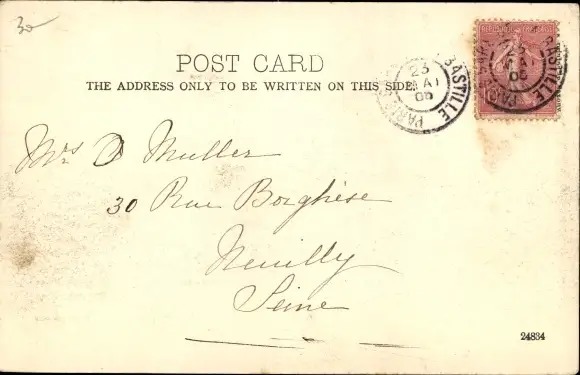 30
POST CARD
THE ADDRESS ONLY TO BE WRITTEN ON THIS SIDE.
BASTILLE
23
MAI
PARIS
BASTILLE
23
MAI
PARIS
Mrs D Muller
30 Rue Borghèse
Neuilly
Seine
24834